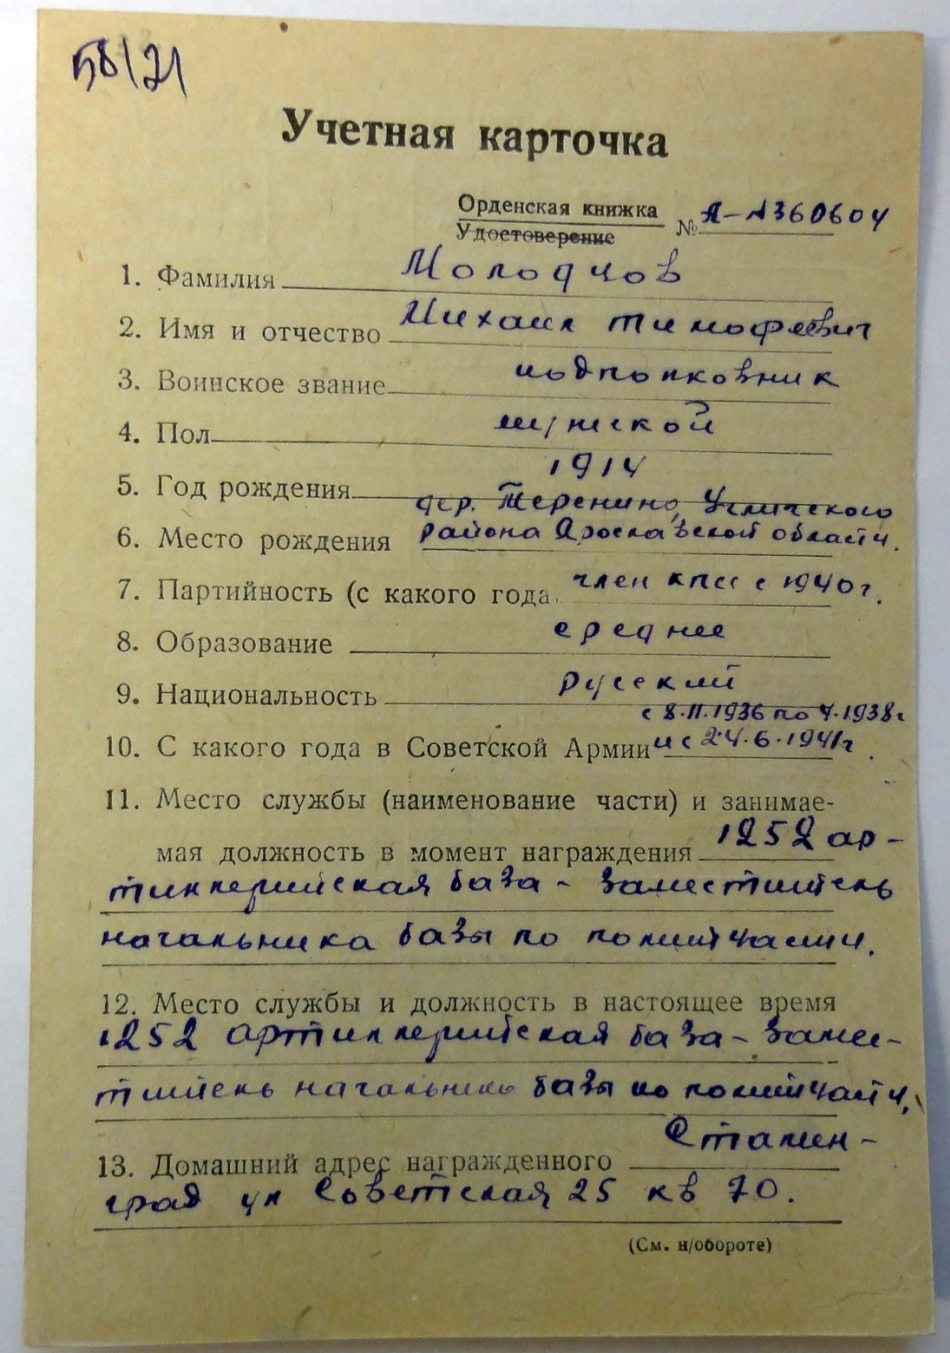 58/21
Учетная карточка
Орденская книжка
Удостоверение № А-№360604
1. Фамилия Молодчов
2. Имя и отчество Михаил Тимофеевич
3. Воинское звание подполковник
4. Пол мужской
5. Год рождения 1914
дер. Теренино, Угличского
6. Место рождения района Ярославской области.
7. Партийность (с какого года член КПСС с 1940 г.
8. Образование среднее
9. Национальность русский
с 8.11.1936 по 4.1938г
10. С какого года в Советской Армии и с 24.6.1941г.
11. Место службы (наименование части) и занимае-
мая должность в момент награждения 1252 ар-
тиллерийская база - заместитель
начальника базы по политчасти.
12. Место службы и должность в настоящее время
1252 артиллерийская база - замес-
титель начальника базы по политчасти,
Сталин-
13. Домашний адрес награжденного
град ул Советская 25 кв 70.
(См. н/обороте)